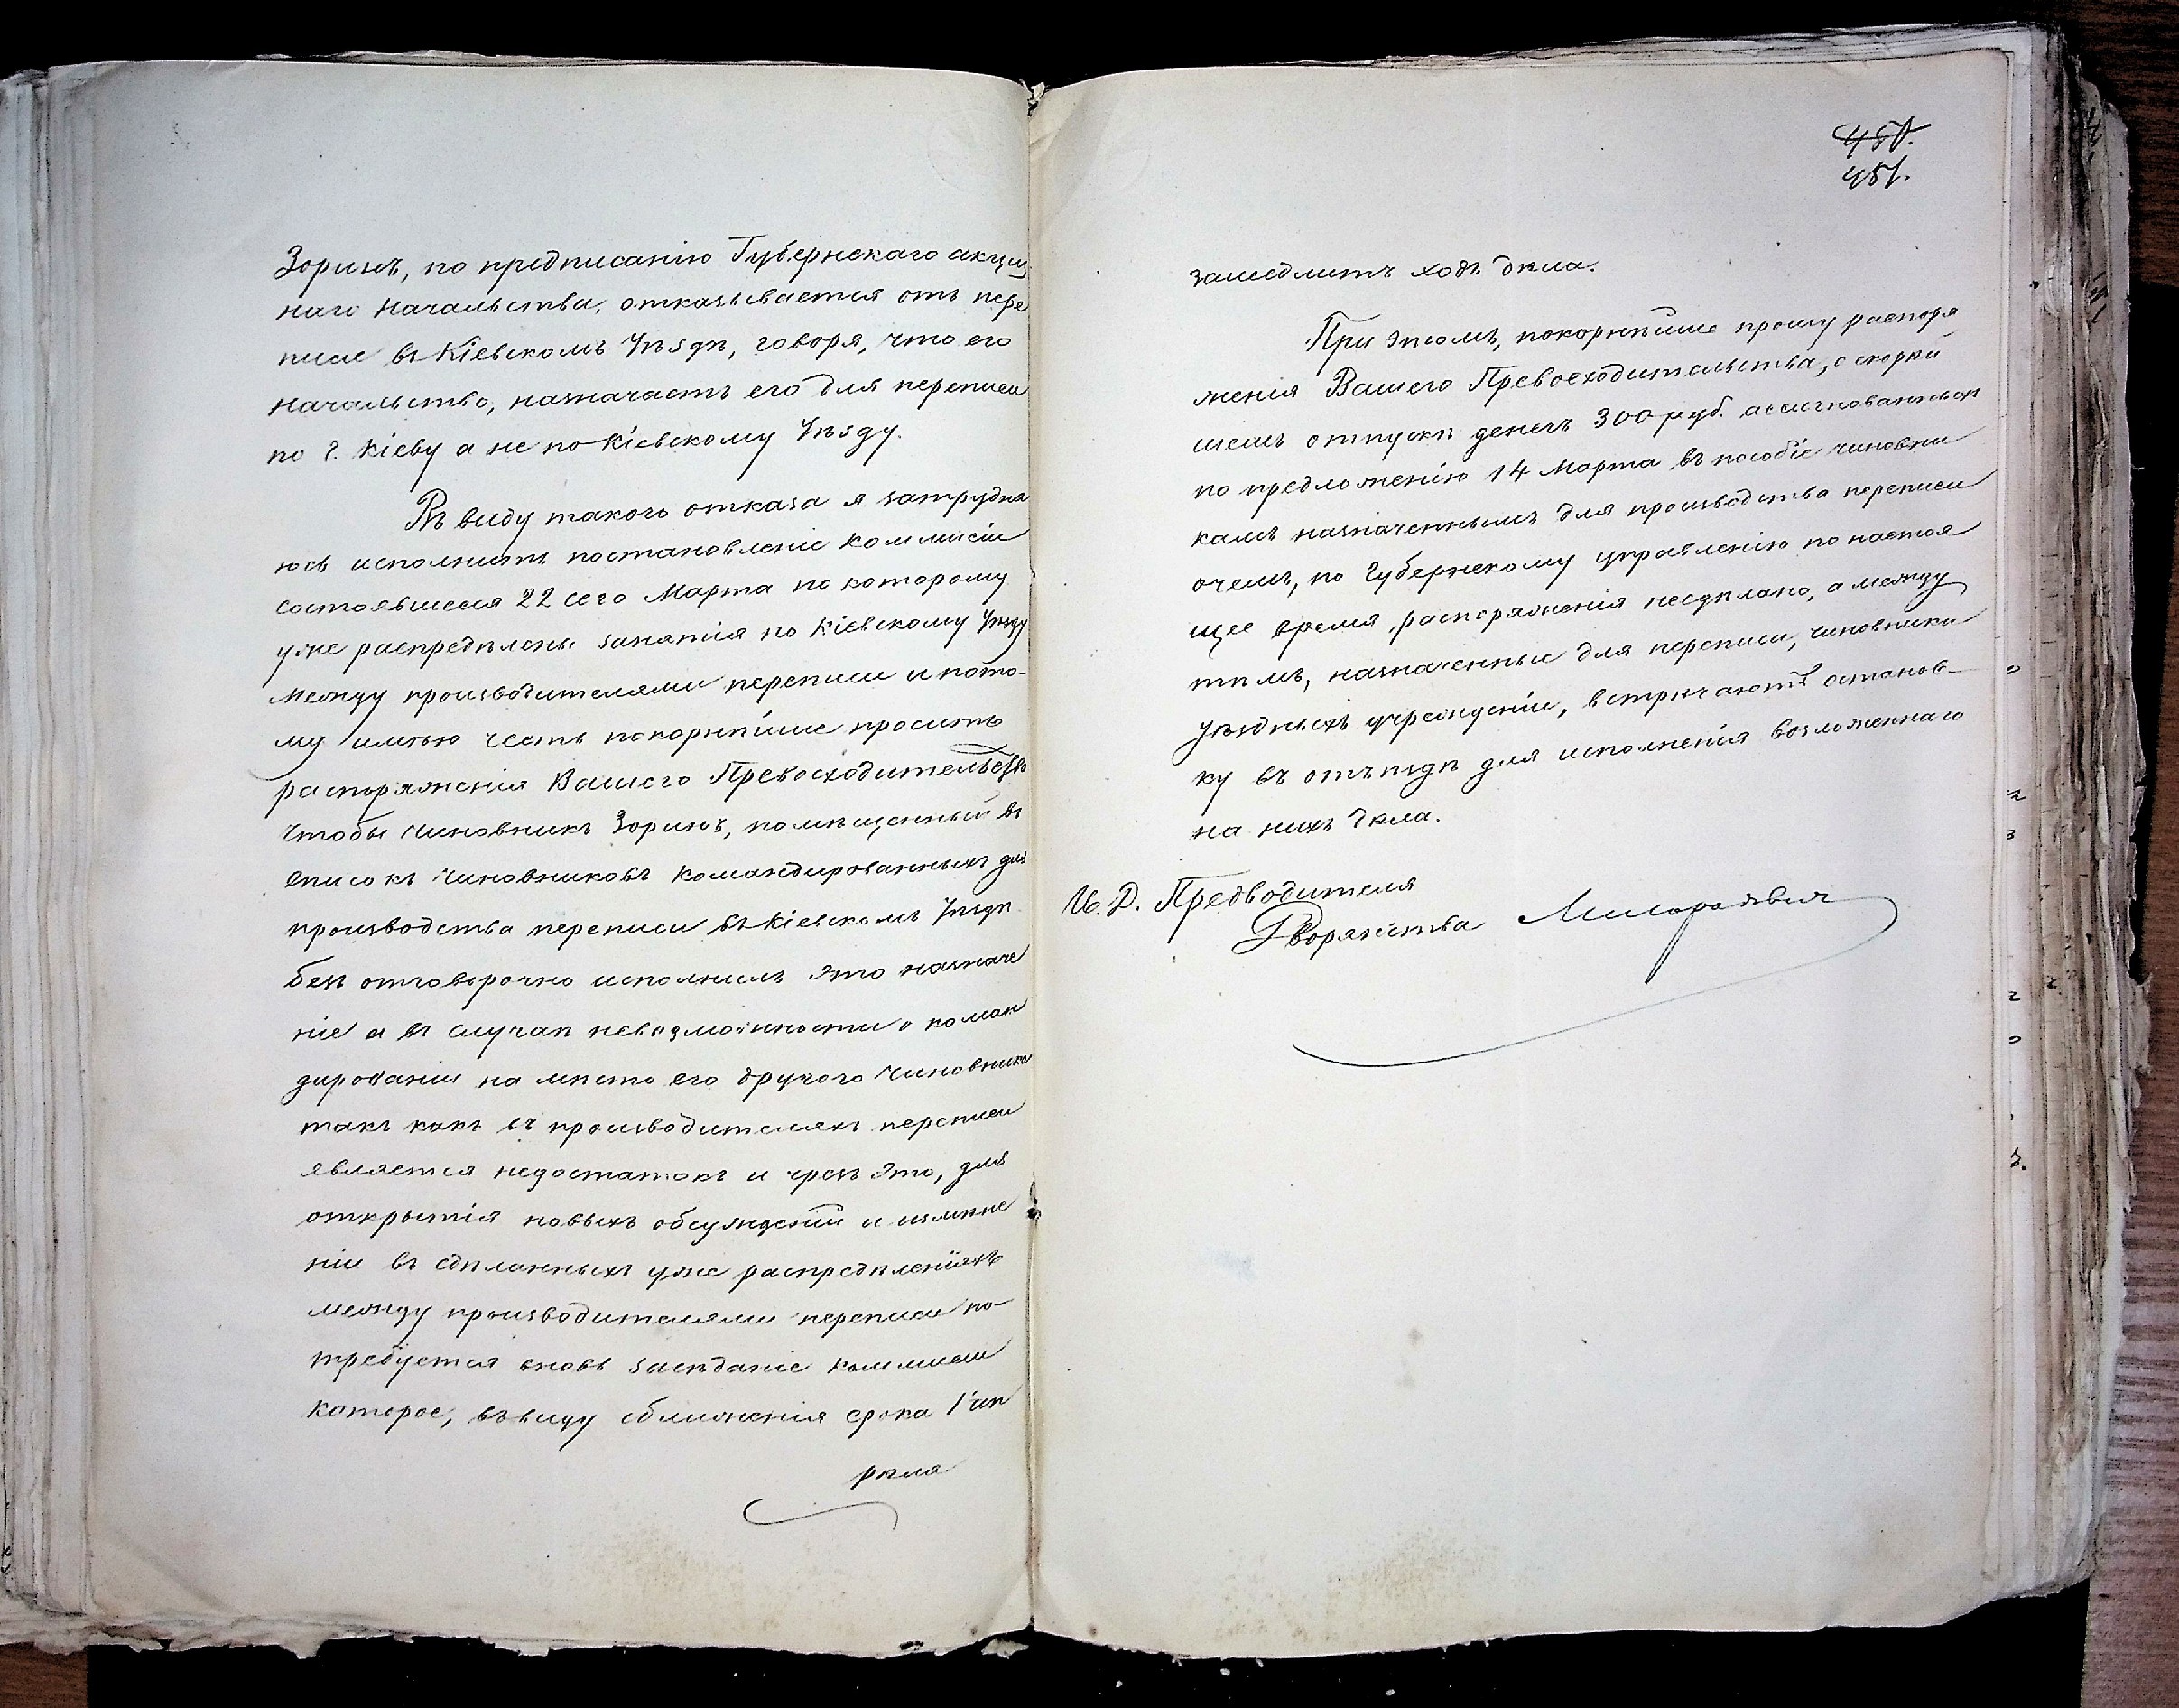 Зоринъ, по предписанію Губернскаго акциз
наго Начальства, отказывается отъ пере
писи въ Кіевскомъ Уѣздѣ, говоря, что его
Начальство, назначаетъ его для переписи
по г. Кіеву а не по Кіевскому Уѣзду.
Въ виду такого отказа я затрудня
юсь исполнить постановленіе Коммисіи
состоявшееся 22 сего Марта по которому
уже распредѣлены занятія по Кіевскому Уѣзду
между производителями переписи и пото-
му имѣю честь покорнѣйше просить
распоряженія Вашего Превосходительства
чтобы чиновникъ Зоринъ, помѣщенный въ
списокъ чиновниковъ командированныхъ для
производства переписи въ Кіевскомъ Уѣздѣ
безъ отговорочно исполнилъ это назначе
ніе а въ случаѣ невозможности о коман
дированіи на мѣсто его другого чиновника
такъ какъ въ производителяхъ переписи
является недостатокъ и чрезъ это, для
открытія новыхъ обсужденій и измѣне
ній въ сдѣланныхъ уже распредѣленіяхъ
между производителями переписи по-
требуется вновь засѣданіе Коммисіи
которое, въ виду сближенія срока 1 Ап
рѣля
450.
451.
замедлитъ ходъ дѣла.
При этомъ, покорнѣйше прошу распоря
женія Вашего Превосходительства, о скорѣй
шемъ отпускѣ денегъ 300 руб. ассигнованныхъ
по предложенію 14 Марта въ пособіе чиновни
камъ назначеннымъ для производства переписи
очемъ, по Губернскому управленію по настоя-
щее время, распоряженія несдѣлано, а между
тѣмъ, назначенные для переписи, чиновники
уѣздныхъ учрежденій, встрѣчаютъ останов-
ку въ отъѣздѣ для исполненія возложеннаго
на нихъ дѣла.
И. Д. Предводителя
Дворянства Милорадович